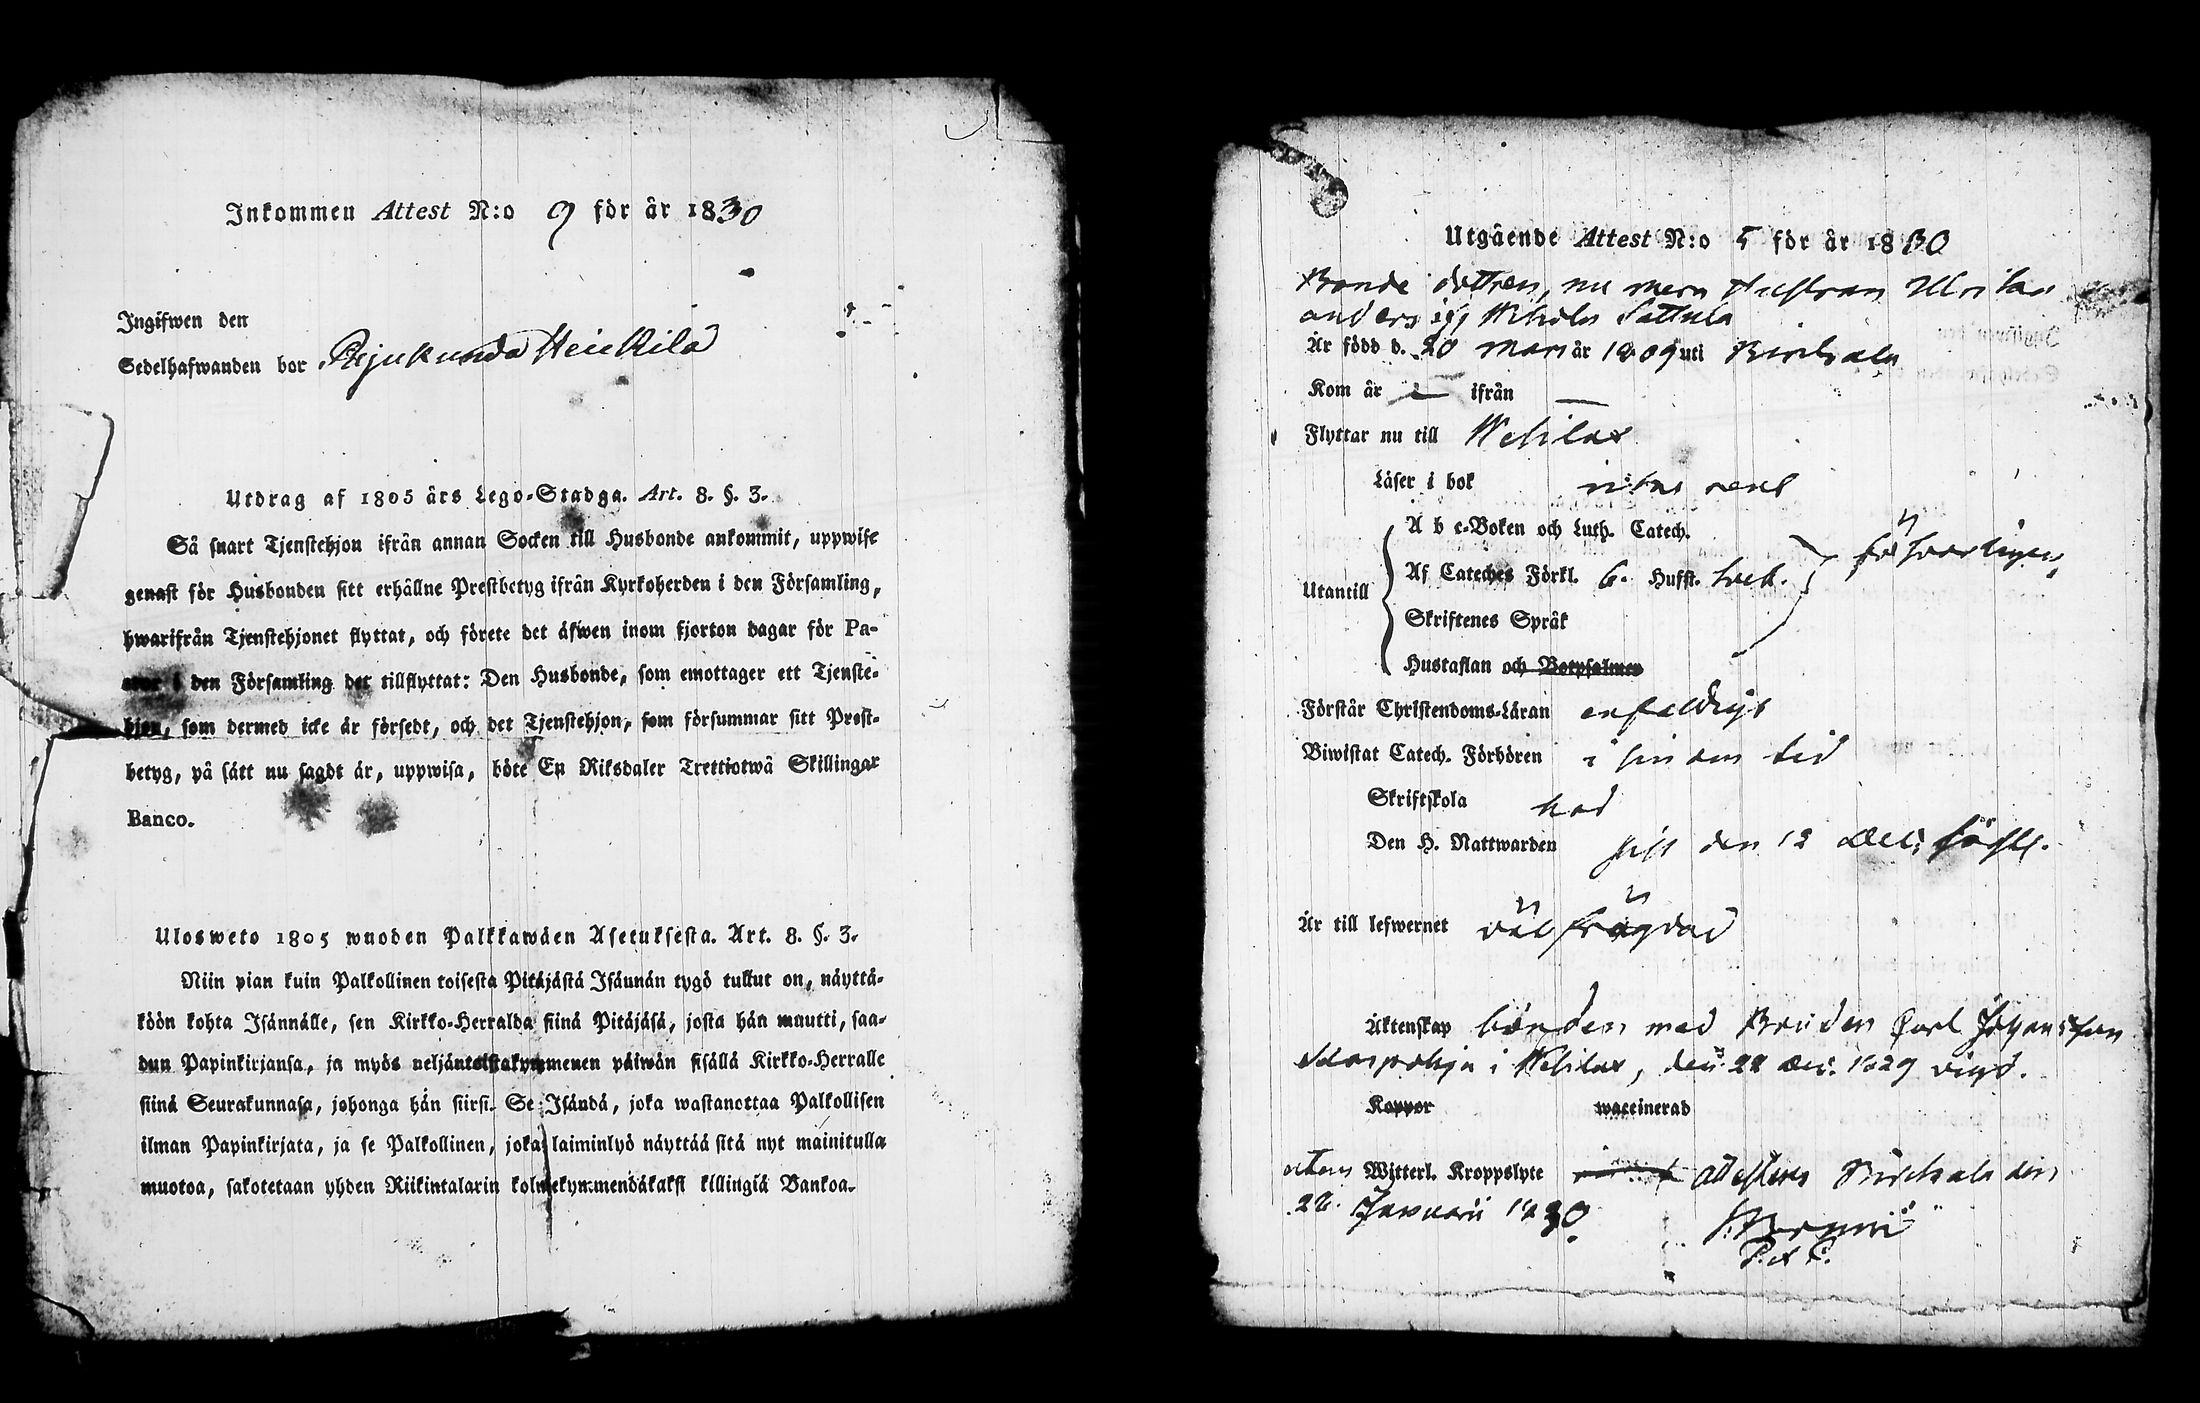 Inkommen Attest N:o 9 för år 1830
Ingifwen den
Sedelhafwanden bor Heickilä
Utdrag af 1805 års Lego-Stadga. Art. 8. §. 3.
Så snart Tjenstehjon ifrån annan Socken till Husbonde ankommit, uppwise
genast för Husbonden sitt erhållne Prestbetyg ifrån Kyrkoherden i den Församling,
hwarifrån Tjenstehjonet flyttat, och förete det äfwen inom fjorton dagar för Pa-
stor i den Församling det tillflyttat: Den Husbonde, som emottager ett Tjenste-
hjon, som dermed icke är försedt, och det Tjenstehjon, som försummar sitt Prest-
betyg, på sätt nu sagdt är, uppwisa, böte En Riksdaler Trettiotwå Skillingar
Banco.
Ulosweto 1805 wuoden Palkkawäen Asetuksesta. Art. 8. §. 3.
Niin pian kuin Palkollinen toisesta Pitäjästä Isäunän tygö tullut on, näyttä-
köön kohta Isännälle, sen Kirkko-Herralda siinä Pitäjäsä, josta hän muutti, saa-
dun Papinkirjansa, ja myös neljäntoistakymmenen päiwän sisällä Kirkko-Herralle
siinä Seurakunnasa, johonga hän siirsi. Se Isändä, joka wastanottaa Palkollisen
ilman Papinkirjata, ja se Palkollinen, joka laiminlyö näyttää sitä nyt mainitulla
muotoa, sakotetaan yhden Riikintalarin kolmekymmendäkaksi killingiä Bankoa.
Utgående Attest N:o 5 för år 1830
Bonde dottren, nu mera Hustrun Ulrika
anders
Är född d. 20 mars år 1809 uti Birkala
Kom år — ifrån —
Flyttar nu till Wesilax
Läser i bok rent
A b c-Boken och Luth. Catech.
Utantill Af Cateches Förkl. 6. Hufst. försvarligen
Skriftenes Språk
Hustaflan och Botpsalmen
Förstår Christendoms-Läran enfaldigt
Biwistat Catech. Förhören i sin tid
Skriftskola
Den H. Nattwarden sist den 12 Dec:
Är till lefwernet välfrägdad
Äktenskap bunden med Carl Johansson
i Wesilax, den 22 Dec: 1829 vigd.
Koppor waccinerad
utan Witterl. Kroppslyte attesteras Birkala den
28. Januarii 1830
P. et P.